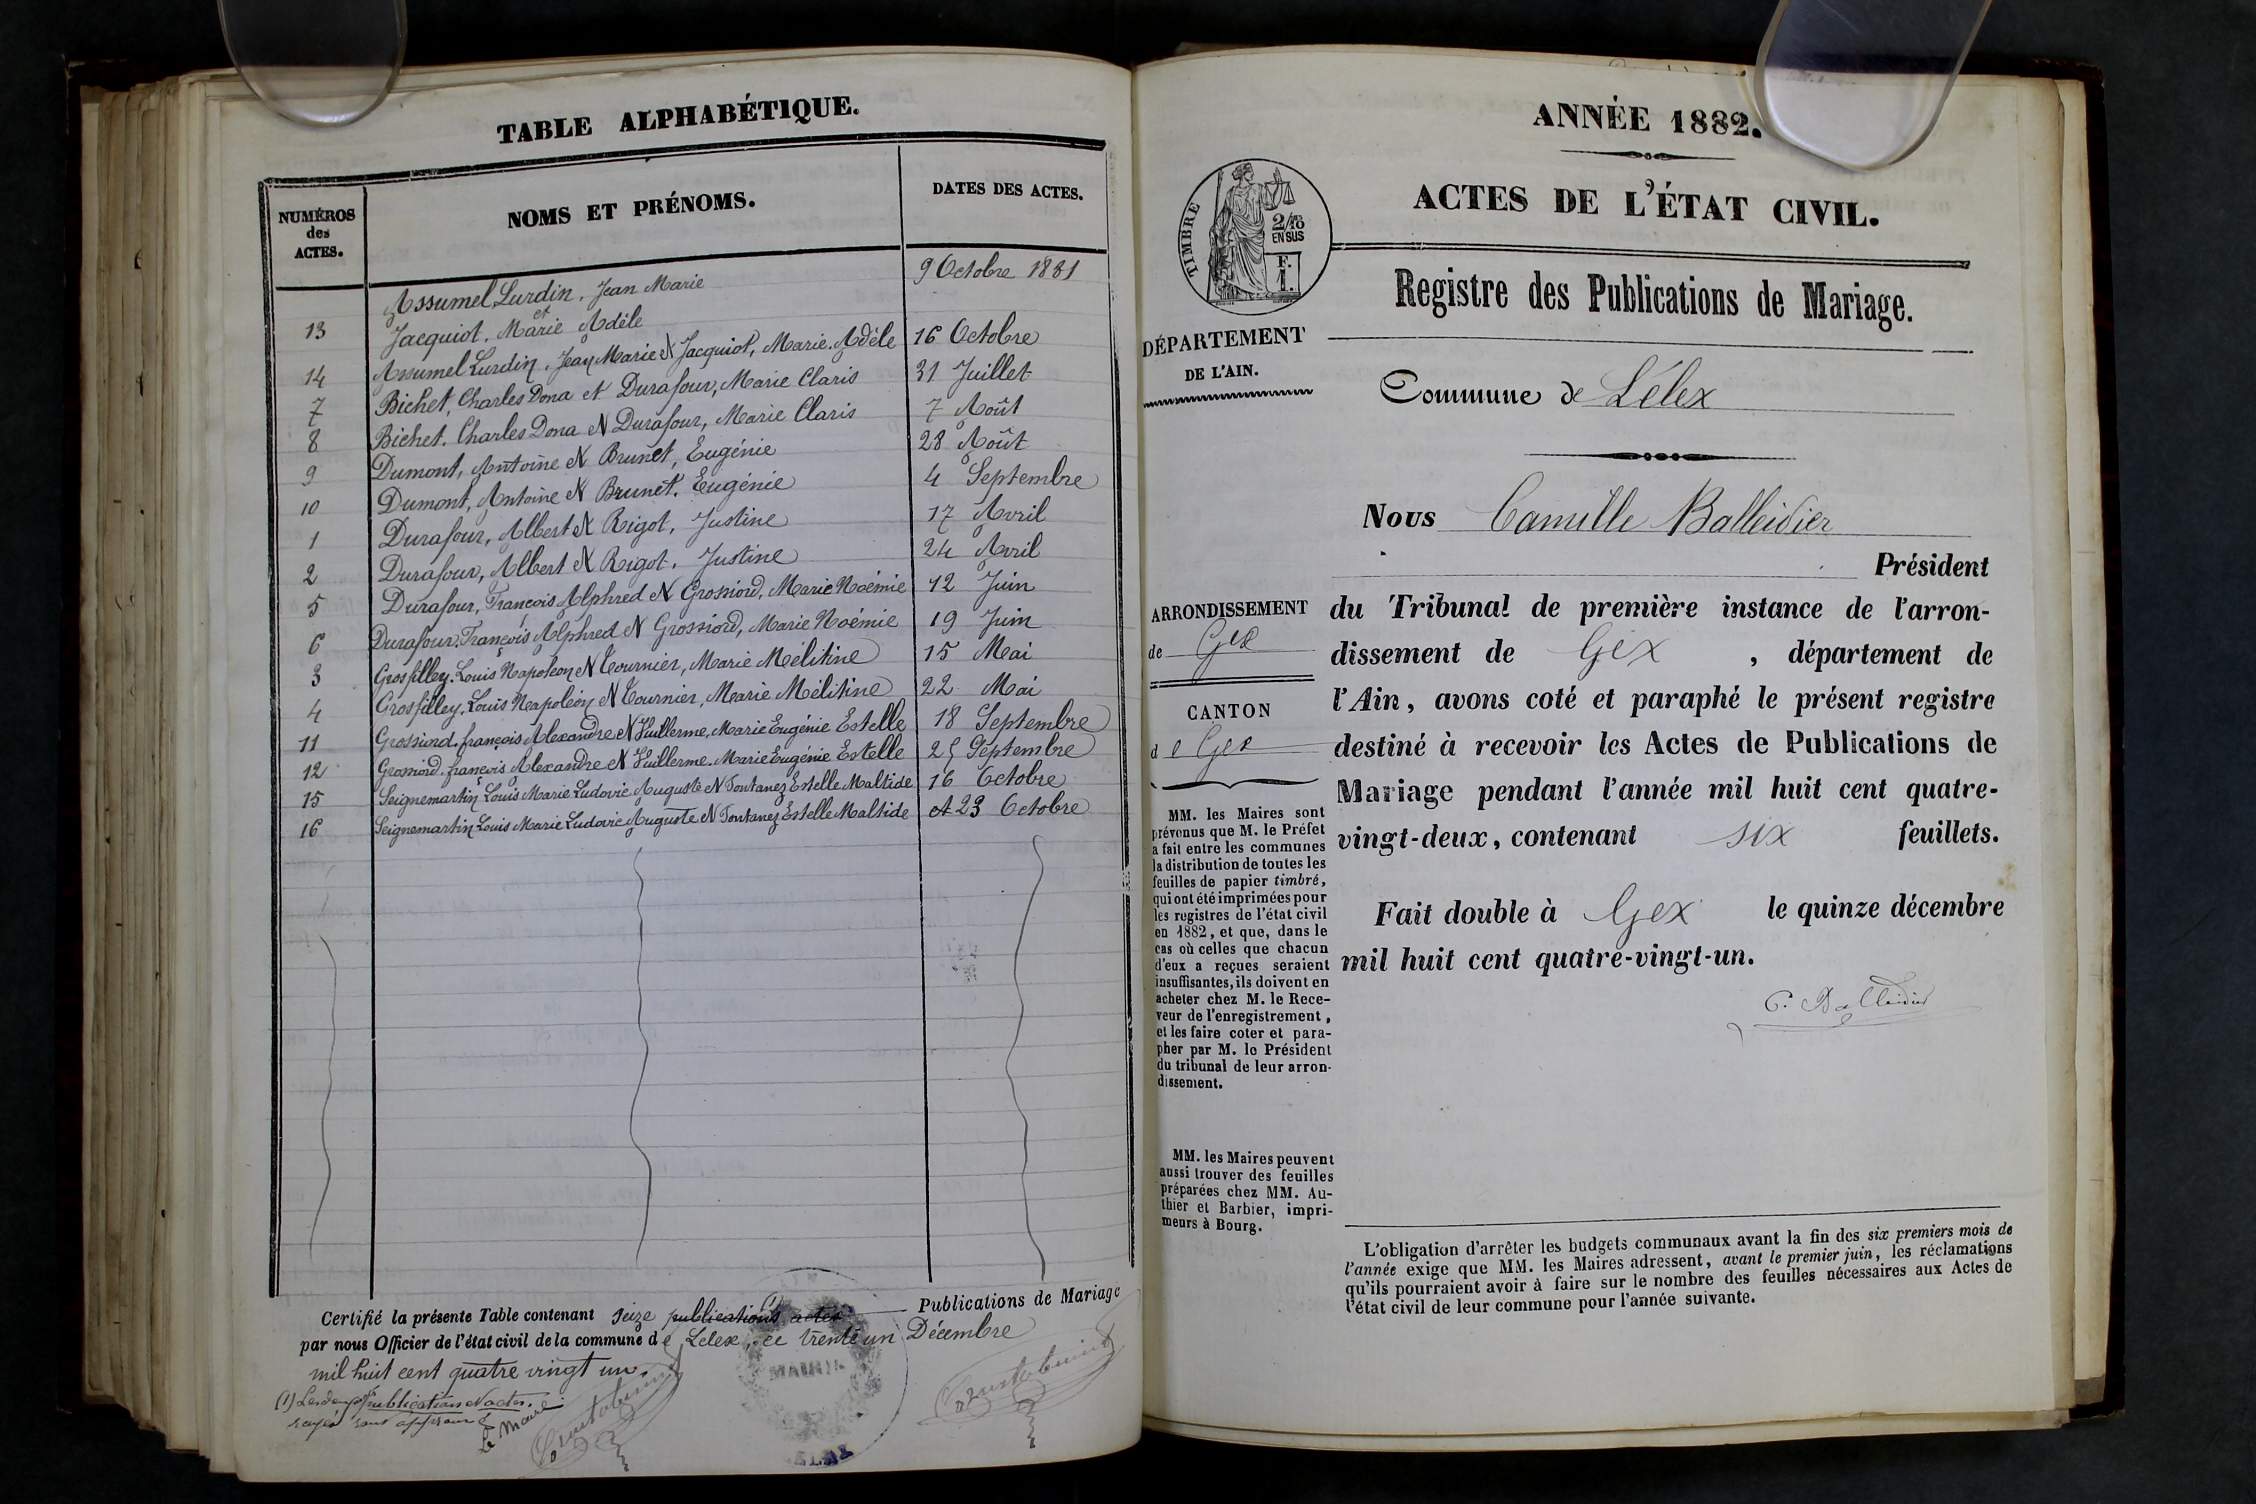 TABLE ALPHABÉTIQUE.
NUMÉROS des ACTES.
NOMS ET PRÉNOMS.
DATES DES ACTES.
Assumel Lurdin, Jean Marie 9 Octobre 1881
et
13 Jacquiot, Marie Adèle
14 Assumel Lurdin, Jean Marie et Jacquiot, Marie Adèle 16 Octobre
7 Bichet, Charles Dona et Durafour, Marie Claris 31 Juillet
8 Bichet, Charles Dona et Durafour, Marie Claris 7 Août
9 Dumont, Antoine et Brunet, Eugénie 28 Août
10 Dumont, Antoine et Brunet, Eugénie 4 Septembre
1 Durafour, Albert et Rigot, Justine 17 Avril
2 Durafour, Albert et Rigot, Justine 24 Avril
5 Durafour, François Alphred et Grossiord, Marie Noémie 12 Juin
6 Durafour, François Alphred et Grossiord, Marie Noémie 19 Juin
3 Grosfilley, Louis Napoléon et Tournier, Marie Mélitine 15 Mai
4 Grosfilley, Louis Napoléon et Tournier, Marie Mélitine 22 Mai
11 Grossiord, françois Alexandre et Vuillerme, Marie Eugénie Estelle 18 Septembre
12 Grossiord, françois Alexandre et Vuillerme, Marie Eugénie Estelle 25 Septembre
15 Seignemartin Louis Marie Ludovic Auguste et Fontanez Estelle Maltide 16 Octobre
16 Seignemartin Louis Marie Ludovic Auguste et Fontanez Estelle Maltide et 23 Octobre
Certifié la présente Table contenant seize publications actes (1) Publications de Mariage
par nous Officier de l'état civil de la commune de Lélex, ce trente un Décembre
mil huit cent quatre vingt un.
(1) Les deux mots publications et actes
rayés sont approuvés
Le Maire
MAIRIE
ANNÉE 1882.
ACTES DE L'ÉTAT CIVIL.
TIMBRE
2/10
EN SUS
F.
1.
Registre des Publications de Mariage.
DÉPARTEMENT
DE L'AIN.
Commune de Lélex
Nous Camille Balleidier
Président
ARRONDISSEMENT
de Gex
CANTON
de Gex
du Tribunal de première instance de l'arron-
dissement de Gex, département de
l'Ain, avons coté et paraphé le présent registre
destiné à recevoir les Actes de Publications de
Mariage pendant l'année mil huit cent quatre-
vingt-deux, contenant six feuillets.
Fait double à Gex le quinze décembre
mil huit cent quatre-vingt-un.
C. Balleidier
MM. les Maires sont
prévenus que M. le Préfet
a fait entre les communes
la distribution de toutes les
feuilles de papier timbré,
qui ont été imprimées pour
les registres de l'état civil
en 1882, et que, dans le
cas où celles que chacun
d'eux a reçues seraient
insuffisantes, ils doivent en
acheter chez M. le Rece-
veur de l'enregistrement,
et les faire coter et para-
pher par M. le Président
du tribunal de leur arron-
dissement.
MM. les Maires peuvent
aussi trouver des feuilles
préparées chez MM. Au-
thier et Barbier, impri-
meurs à Bourg.
L'obligation d'arrêter les budgets communaux avant la fin des six premiers mois de
l'année exige que MM. les Maires adressent, avant le premier juin, les réclamations
qu'ils pourraient avoir à faire sur le nombre des feuilles nécessaires aux Actes de
l'état civil de leur commune pour l'année suivante.